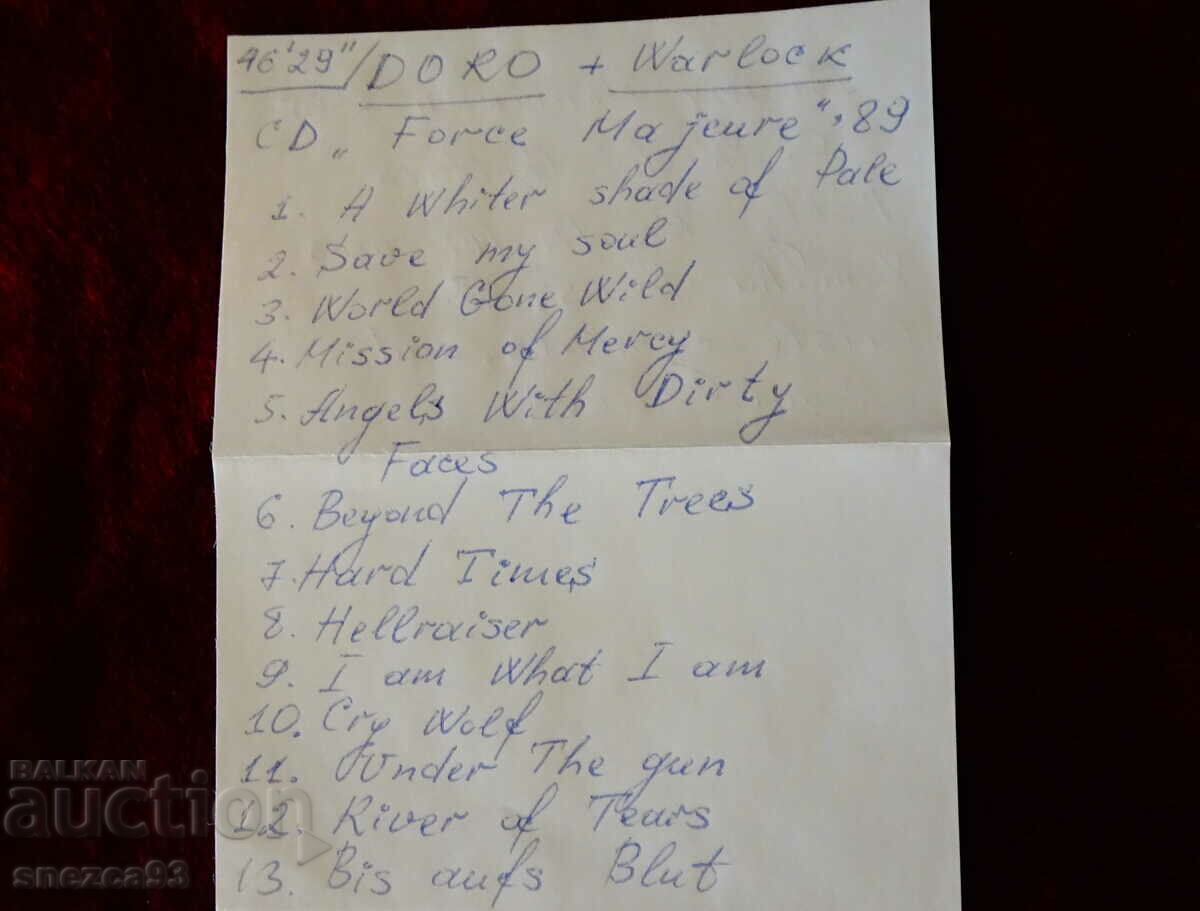 46'29"/DORO + Warlock
CD „Force Majeure", 89
1. A Whiter shade of Pale
2. Save my soul
3. World Gone Wild
4. Mission of Mercy
5. Angels With Dirty
Faces
6. Beyond The Trees
7. Hard Times
8. Hellraiser
9. I am What I am
10. Cry Wolf
11. Under The gun
12. River of Tears
13. Bis aufs Blut
BALKAN
auction
snezca93